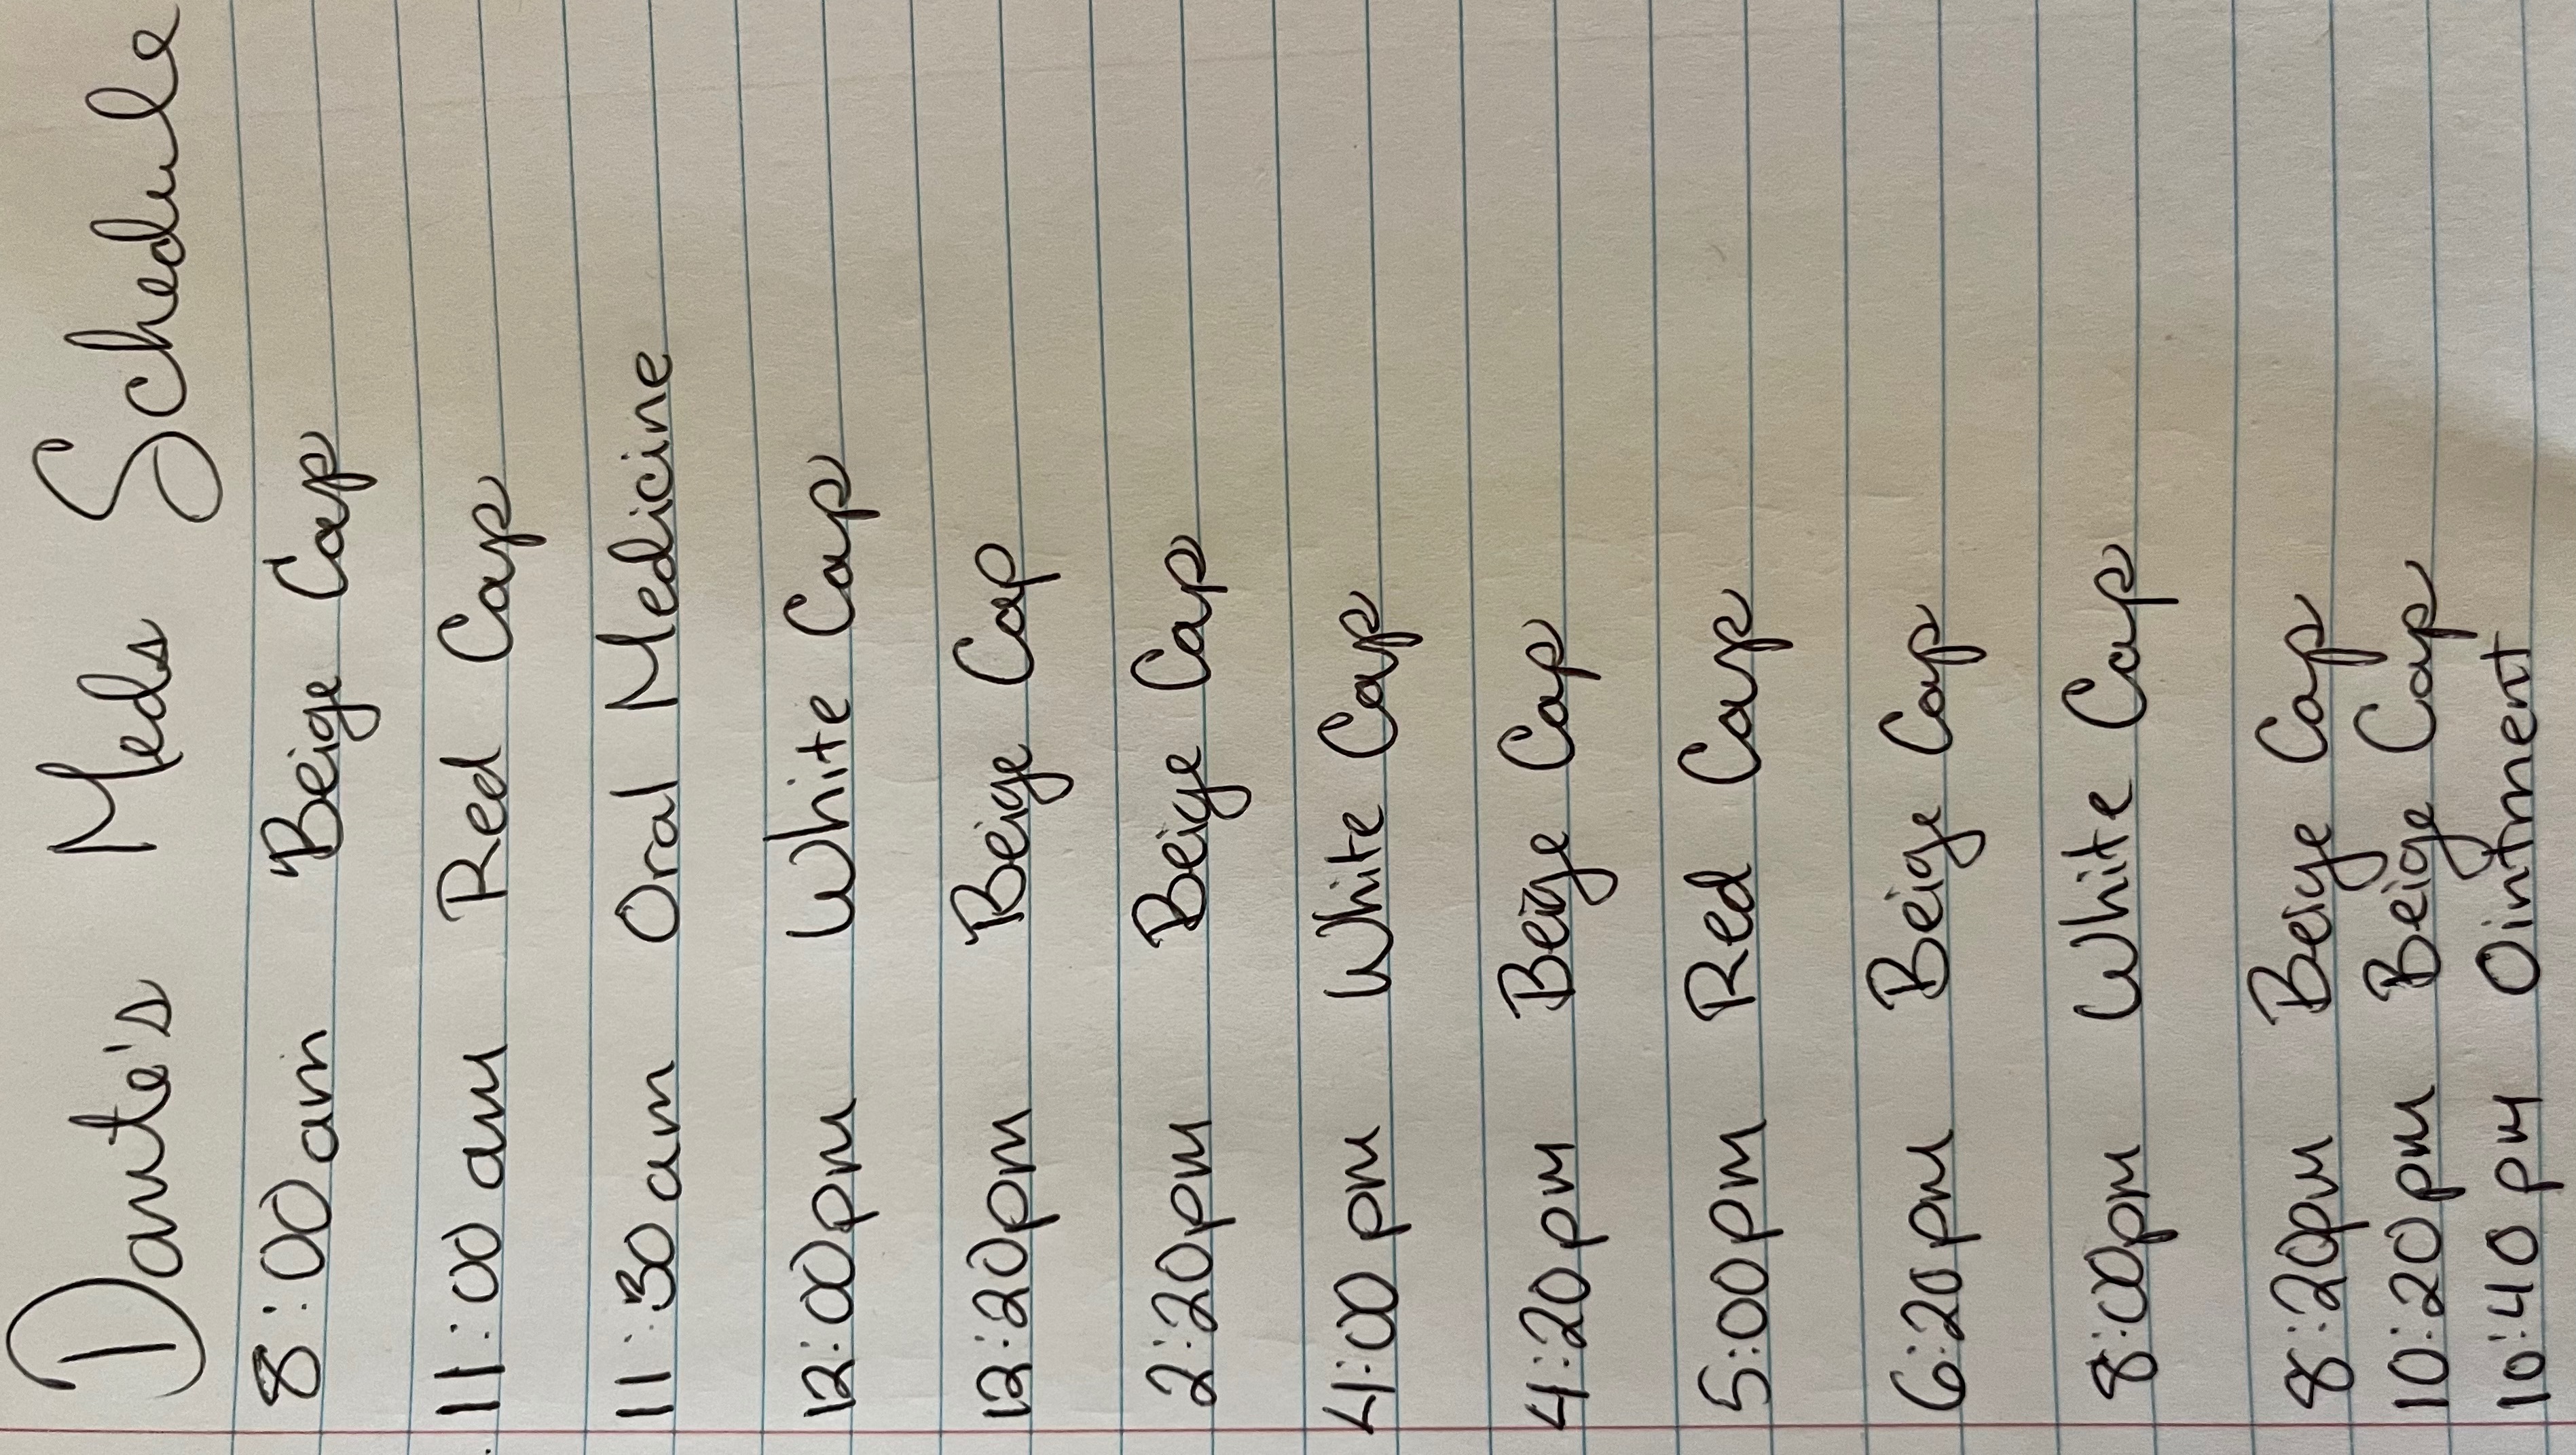 Dante's Meds Schedule
8:00 am Beige Cap
11:00 am Red Cap
11:30 am Oral Medicine
12:00pm White Cap
12:20pm Beige Cap
2:20pm Beige Cap
4:00 pm White Cap
4:20pm Beige Cap
5:00pm Red Cap
6:20pm Beige Cap
8:00pm White Cap
8:20pm Beige Cap
10:20pm Beige Cap
10:40 pm Ointment